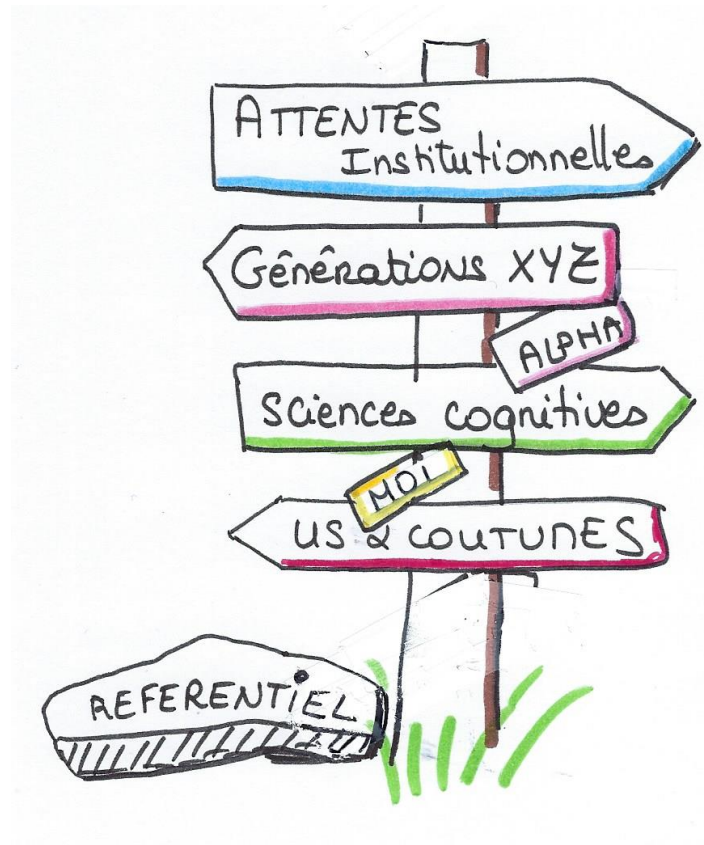 ATTENTES
Institutionnelles
Générations XYZ
ALPHA
Sciences cognitives
MOI
US & COUTUMES
REFERENTIEL